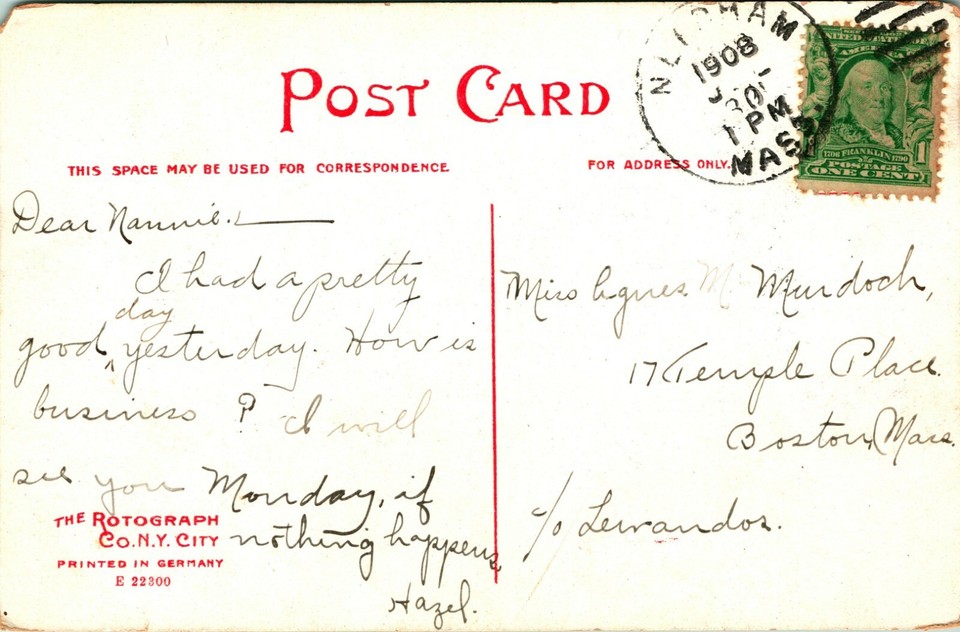 POST CARD
THIS SPACE MAY BE USED FOR CORRESPONDENCE
FOR ADDRESS ONLY.
1908
30
1 PM
MASS
1706 FRANKLIN 1790
POSTAGE
1 ONE CENT 1
Dear Nannie.
I had a pretty
day
good ^ yesterday. How is
business ? I will
see you Monday, if
nothing happens
Hazel.
Miss Agnes M Murdoch,
17 Temple Place.
Boston, Mass.
c/o Lewandos.
THE ROTOGRAPH
CO. N.Y. CITY
PRINTED IN GERMANY
E 22300